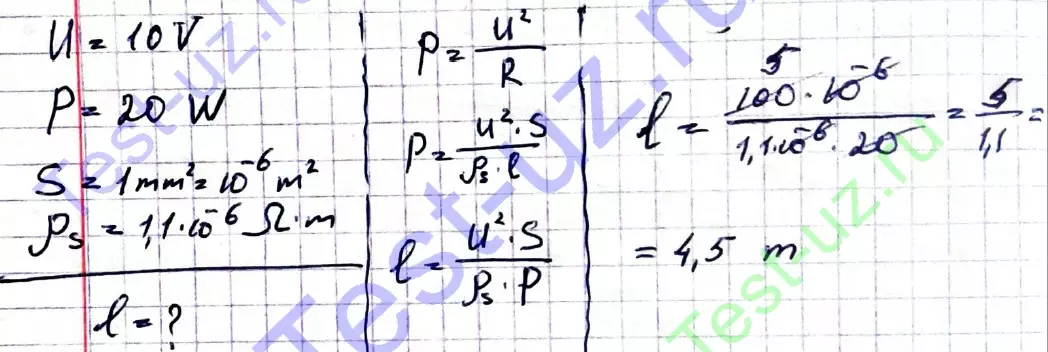 U = 10 V
P = 20 W
S = 1 mm² = 10⁻⁶ m²
ρₛ = 1,1·10⁻⁶ Ω·m
l = ?
P = U² / R
P = U²·S / ρₛ·l
l = U²·S / ρₛ·P
l = 100·10⁻⁶ / 1,1·10⁻⁶·20 = 5 / 1,1 =
5
= 4,5 m
Test-uz.ru
Test-uz.ru
Test-uz.ru